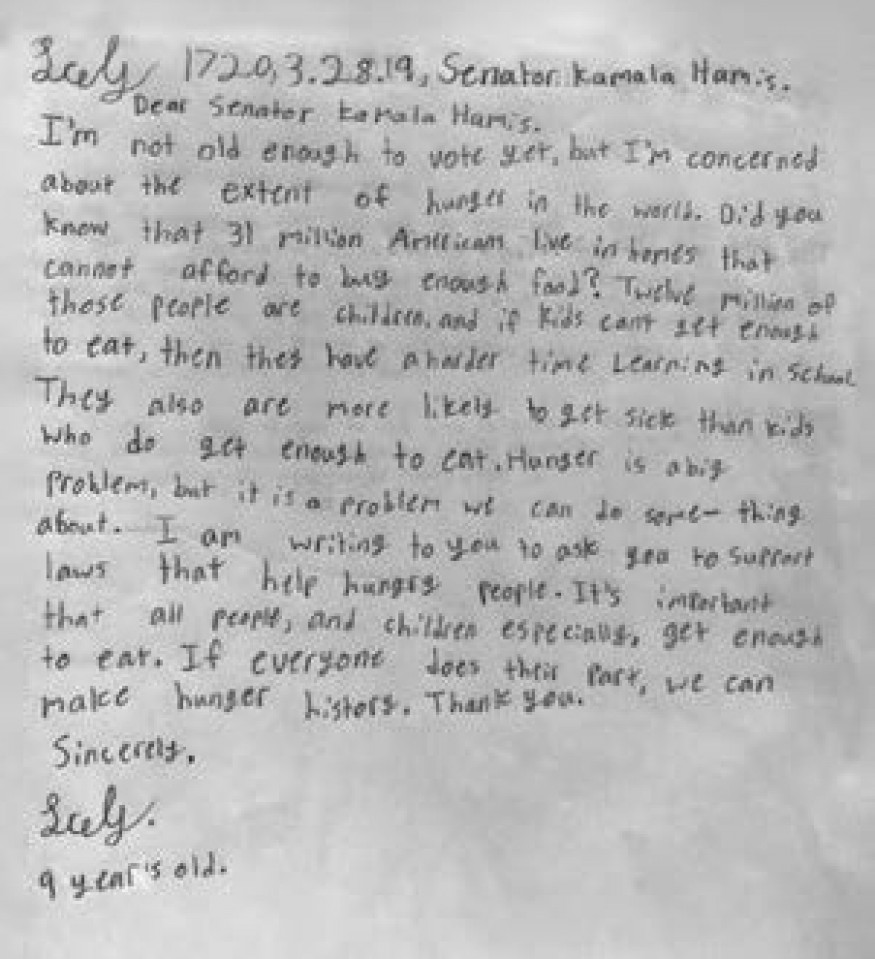 1720, 3.28.19, Senator Kamala Harris.
Dear Senator Kamala Harris.
I'm not old enough to vote yet, but I'm concerned
about the extent of hunger in the world. Did you
know that 31 million Americans live in homes that
cannot afford to buy enough food? Twelve million of
those people are children, and if kids cant get enough
to eat, then they have a harder time Learning in school
They also are more likely to get sick than kids
who do get enough to eat. Hunger is a big
problem, but it is a problem we can do some- thing
about. I am writing to you to ask you to support
laws that help hungry people. It's important
that all people, and children especially, get enough
to eat. If everyone does their part, we can
make hunger history. Thank you.
Sincerely.
9 year's old.